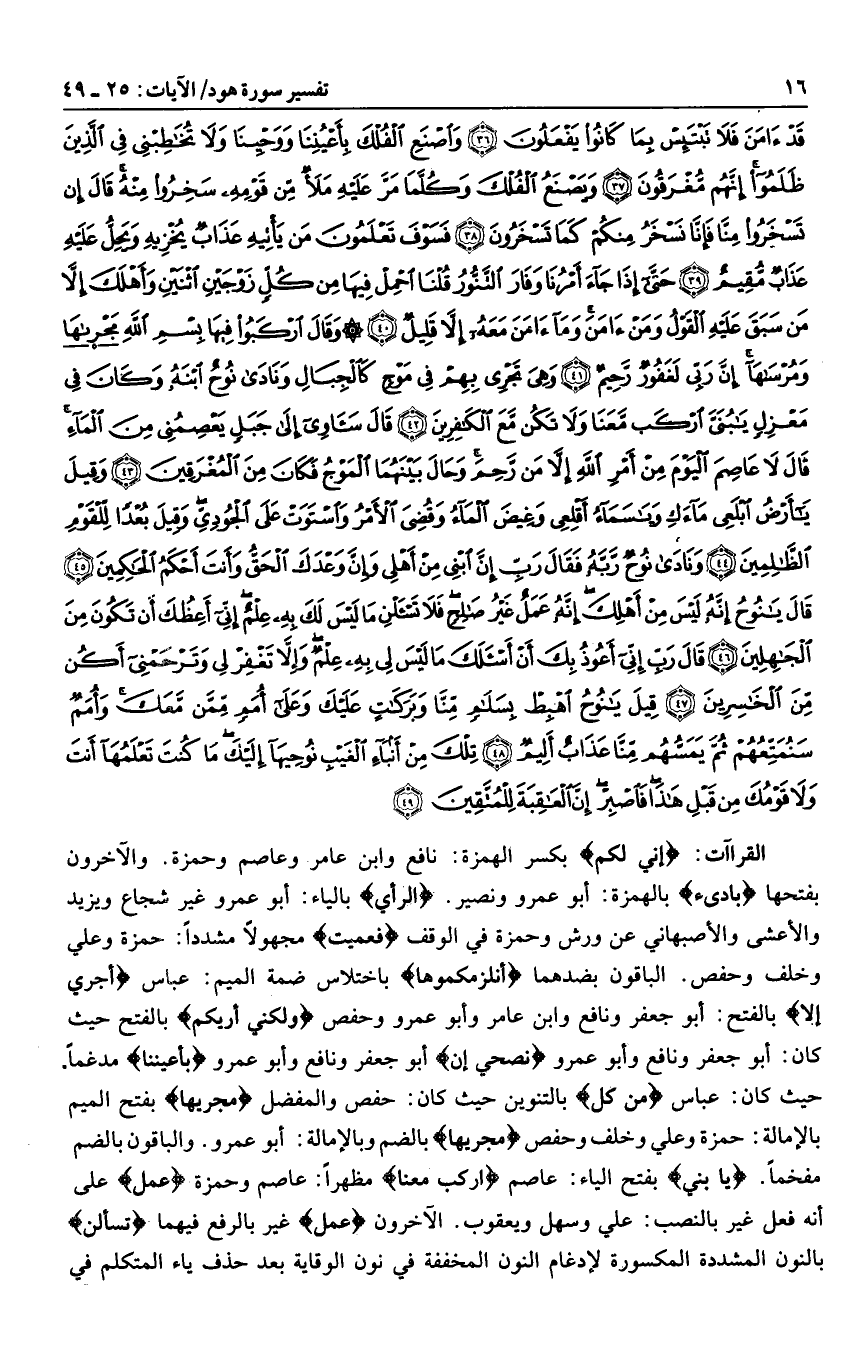 ١٦ تفسير سورة هود/ الآيات: ٢٥ ـ ٤٩
قَدْ ءَامَنَ فَلَا نَبْتَبِسْ بِمَا كَانُوا۟ يَفْعَلُونَ ﴿٣٦﴾ وَٱصْنَعِ ٱلْفُلْكَ بِأَعْيُنِنَا وَوَحْيِنَا وَلَا تُخَٰطِبْنِى فِى ٱلَّذِينَ
ظَلَمُوٓا۟ۚ إِنَّهُم مُّغْرَقُونَ ﴿٣٧﴾ وَيَصْنَعُ ٱلْفُلْكَ وَكُلَّمَا مَرَّ عَلَيْهِ مَلَأٌ مِّن قَوْمِهِۦ سَخِرُوا۟ مِنْهُۚ قَالَ إِن
تَسْخَرُوا۟ مِنَّا فَإِنَّا نَسْخَرُ مِنكُمْ كَمَا تَسْخَرُونَ ﴿٣٨﴾ فَسَوْفَ تَعْلَمُونَ مَن يَأْنِيهِ عَذَابٌ يُخْزِيهِ وَيَحِلُّ عَلَيْهِ
عَذَابٌ مُّقِيمٌ ﴿٣٩﴾ حَتَّىٰٓ إِذَا جَآءَ أَمْرُنَا وَفَارَ ٱلتَّنُّورُ قُلْنَا ٱحْمِلْ فِيهَا مِن كُلٍّ زَوْجَيْنِ ٱثْنَيْنِ وَأَهْلَكَ إِلَّا
مَن سَبَقَ عَلَيْهِ ٱلْقَوْلُ وَمَنْ ءَامَنَۚ وَمَآ ءَامَنَ مَعَهُۥٓ إِلَّا قَلِيلٌ ﴿٤٠﴾ ۞ وَقَالَ ٱرْكَبُوا۟ فِيهَا بِسْمِ ٱللَّهِ مَجْر۪ىٰهَا
وَمُرْسَىٰهَآۚ إِنَّ رَبِّى لَغَفُورٌ رَّحِيمٌ ﴿٤١﴾ وَهِىَ تَجْرِى بِهِمْ فِى مَوْجٍ كَٱلْجِبَالِ وَنَادَىٰ نُوحٌ ٱبْنَهُۥ وَكَانَ فِى
مَعْزِلٍ يَٰبُنَىَّ ٱرْكَب مَّعَنَا وَلَا تَكُن مَّعَ ٱلْكَٰفِرِينَ ﴿٤٢﴾ قَالَ سَـَٔاوِىٓ إِلَىٰ جَبَلٍ يَعْصِمُنِى مِنَ ٱلْمَآءِۚ
قَالَ لَا عَاصِمَ ٱلْيَوْمَ مِنْ أَمْرِ ٱللَّهِ إِلَّا مَن رَّحِمَۚ وَحَالَ بَيْنَهُمَا ٱلْمَوْجُ فَكَانَ مِنَ ٱلْمُغْرَقِينَ ﴿٤٣﴾ وَقِيلَ
يَٰٓأَرْضُ ٱبْلَعِى مَآءَكِ وَيَٰسَمَآءُ أَقْلِعِى وَغِيضَ ٱلْمَآءُ وَقُضِىَ ٱلْأَمْرُ وَٱسْتَوَتْ عَلَى ٱلْجُودِىِّۖ وَقِيلَ بُعْدًا لِّلْقَوْمِ
ٱلظَّٰلِمِينَ ﴿٤٤﴾ وَنَادَىٰ نُوحٌ رَّبَّهُۥ فَقَالَ رَبِّ إِنَّ ٱبْنِى مِنْ أَهْلِى وَإِنَّ وَعْدَكَ ٱلْحَقُّ وَأَنتَ أَحْكَمُ ٱلْحَٰكِمِينَ ﴿٤٥﴾
قَالَ يَٰنُوحُ إِنَّهُۥ لَيْسَ مِنْ أَهْلِكَۖ إِنَّهُۥ عَمَلٌ غَيْرُ صَٰلِحٍۖ فَلَا تَسْـَٔلْنِ مَا لَيْسَ لَكَ بِهِۦ عِلْمٌۖ إِنِّىٓ أَعِظُكَ أَن تَكُونَ مِنَ
ٱلْجَٰهِلِينَ ﴿٤٦﴾ قَالَ رَبِّ إِنِّىٓ أَعُوذُ بِكَ أَنْ أَسْـَٔلَكَ مَا لَيْسَ لِى بِهِۦ عِلْمٌۖ وَإِلَّا تَغْفِرْ لِى وَتَرْحَمْنِىٓ أَكُن
مِّنَ ٱلْخَٰسِرِينَ ﴿٤٧﴾ قِيلَ يَٰنُوحُ ٱهْبِطْ بِسَلَٰمٍ مِّنَّا وَبَرَكَٰتٍ عَلَيْكَ وَعَلَىٰٓ أُمَمٍ مِّمَّن مَّعَكَۚ وَأُمَمٌ
سَنُمَتِّعُهُمْ ثُمَّ يَمَسُّهُم مِّنَّا عَذَابٌ أَلِيمٌ ﴿٤٨﴾ تِلْكَ مِنْ أَنۢبَآءِ ٱلْغَيْبِ نُوحِيهَآ إِلَيْكَۖ مَا كُنتَ تَعْلَمُهَآ أَنتَ
وَلَا قَوْمُكَ مِن قَبْلِ هَٰذَاۖ فَٱصْبِرْۖ إِنَّ ٱلْعَٰقِبَةَ لِلْمُتَّقِينَ ﴿٤٩﴾
القراآت: ﴿إني لكم﴾ بكسر الهمزة: نافع وابن عامر وعاصم وحمزة. والآخرون
بفتحها ﴿بادىء﴾ بالهمزة: أبو عمرو ونصير. ﴿الرأي﴾ بالياء: أبو عمرو غير شجاع ويزيد
والأعشى والأصبهاني عن ورش وحمزة في الوقف ﴿فعميت﴾ مجهولاً مشدداً: حمزة وعلي
وخلف وحفص. الباقون بضدهما ﴿أنلزمكموها﴾ باختلاس ضمة الميم: عباس ﴿أجري
إلا﴾ بالفتح: أبو جعفر ونافع وابن عامر وأبو عمرو وحفص ﴿ولكني أريكم﴾ بالفتح حيث
كان: أبو جعفر ونافع وأبو عمرو ﴿نصحي إن﴾ أبو جعفر ونافع وأبو عمرو ﴿بأعيننا﴾ مدغماً.
حيث كان: عباس ﴿من كل﴾ بالتنوين حيث كان: حفص والمفضل ﴿مجريها﴾ بفتح الميم
بالإمالة: حمزة وعلي وخلف وحفص ﴿مجريها﴾ بالضم وبالإمالة: أبو عمرو. والباقون بالضم
مفخماً. ﴿يا بني﴾ بفتح الياء: عاصم ﴿اركب معنا﴾ مظهراً: عاصم وحمزة ﴿عمل﴾ على
أنه فعل غير بالنصب: علي وسهل ويعقوب. الآخرون ﴿عمل﴾ غير بالرفع فيهما ﴿تسألن﴾
بالنون المشددة المكسورة لإدغام النون المخففة في نون الوقاية بعد حذف ياء المتكلم في